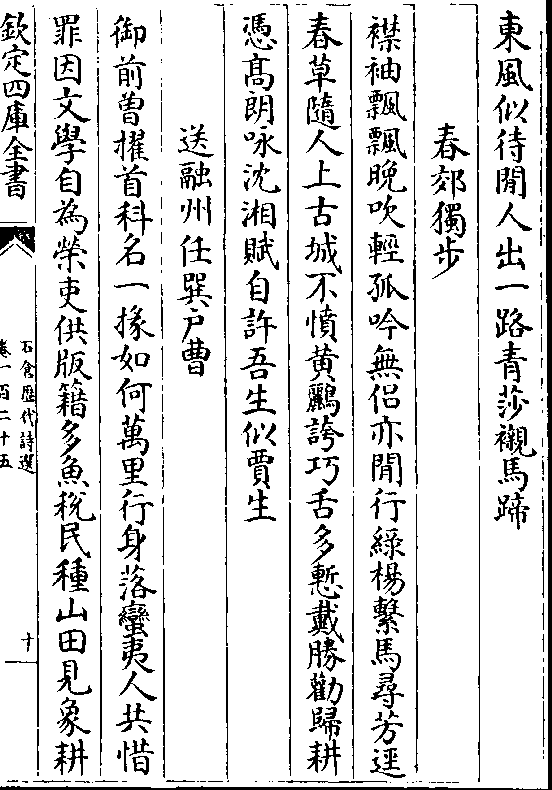 東風似待閒人出一路青莎襯馬蹄
春郊獨步
襟袖飄飄晚吹輕孤吟無侣亦閒行緑楊繫馬尋芳逕
春草隨人上古城不憤黄鸝誇巧舌多慙戴勝勸歸耕
憑髙朗咏沈湘賦自許吾生似賈生
送融州任巽户曹
御前曽擢首科名一掾如何萬里行身落蠻夷人共惜
罪因文學自為榮吏供版籍多魚稅民種山田見象耕
欽定四庫全書
石倉歷代詩選
卷一百二十五
十